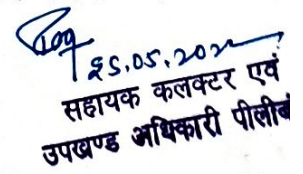 25.05.202
सहायक कलक्टर एवं
उपखण्ड अधिकारी पीलीब